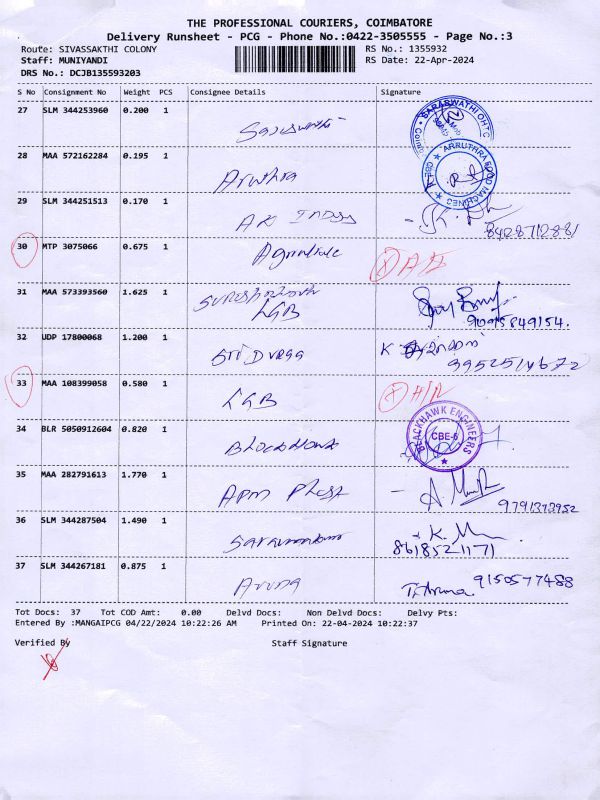 THE PROFESSIONAL COURIERS, COIMBATORE
Delivery Runsheet - PCG - Phone No.:0422-3505555 - Page No.:3
Route: SIVASSAKTHI COLONY RS No.: 1355932
Staff: MUNIYANDI RS Date: 22-Apr-2024
DRS No.: DCJB135593203
S No Consignment No Weight PCS Consignee Details Signature
27 SLM 344253960 0.200 1
28 MAA 572162284 0.195 1 Aruthra
ARRUTHRA FOOD MACHINES
29 SLM 344251513 0.170 1 AK
8428712881
30 MTP 3075066 0.675 1
31 MAA 573393560 1.625 1 LGB
9095849154.
32 UDP 17800068 1.200 1 Sri Durga K
9952514672
33 MAA 108399058 0.580 1 LGB
34 BLR 5050912604 0.820 1
BLACKHAWK ENGINEERS
CBE-6
35 MAA 282791613 1.770 1 APM
9791393952
36 SLM 344287504 1.490 1 K.
8618521171
37 SLM 344267181 0.875 1 Aruna T. Aruna 9150577488
Tot Docs: 37 Tot COD Amt: 0.00 Delvd Docs: Non Delvd Docs: Delvy Pts:
Entered By :MANGAIPCG 04/22/2024 10:22:26 AM Printed On: 22-04-2024 10:22:37
Verified By Staff Signature